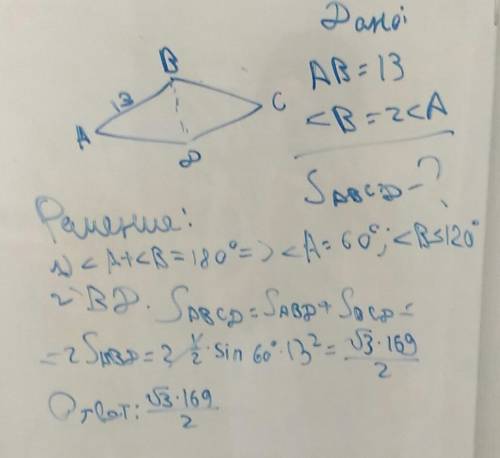 Дано:
AB=13
<B=2<A
S ABCD-?
B
13
A
C
D
Решение:
1) <A+<B=180°=> <A=60°; <B=120°
2) BD. S ABCD = S ABD + S BCD =
=2S ABD = 2·1/2·sin 60°·13² = √3·169/2
Ответ: √3·169/2